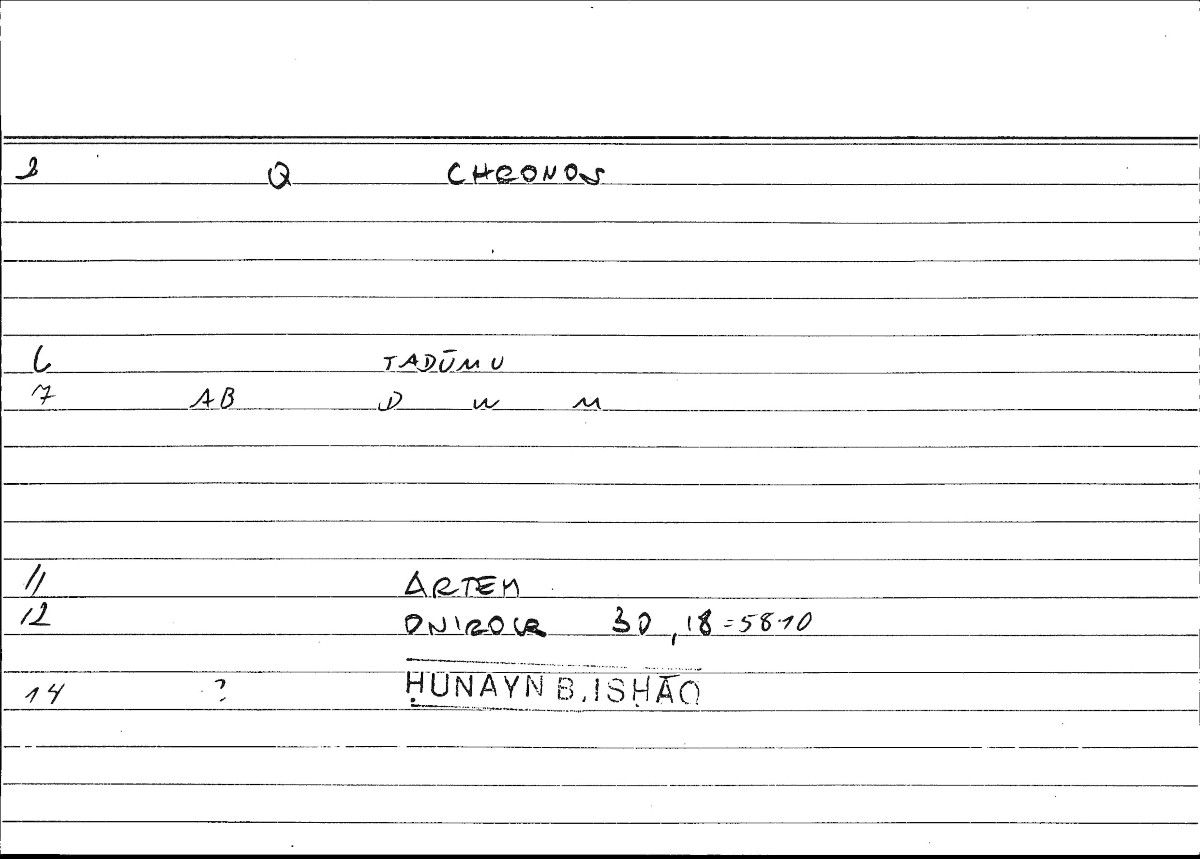 2 Q CHRONOS
6 TADŪMU
7 AB D W M
11 ARTEM
12 ONIROCR 30,18=58.10
14 ? ḤUNAYN B. ISḤĀQ